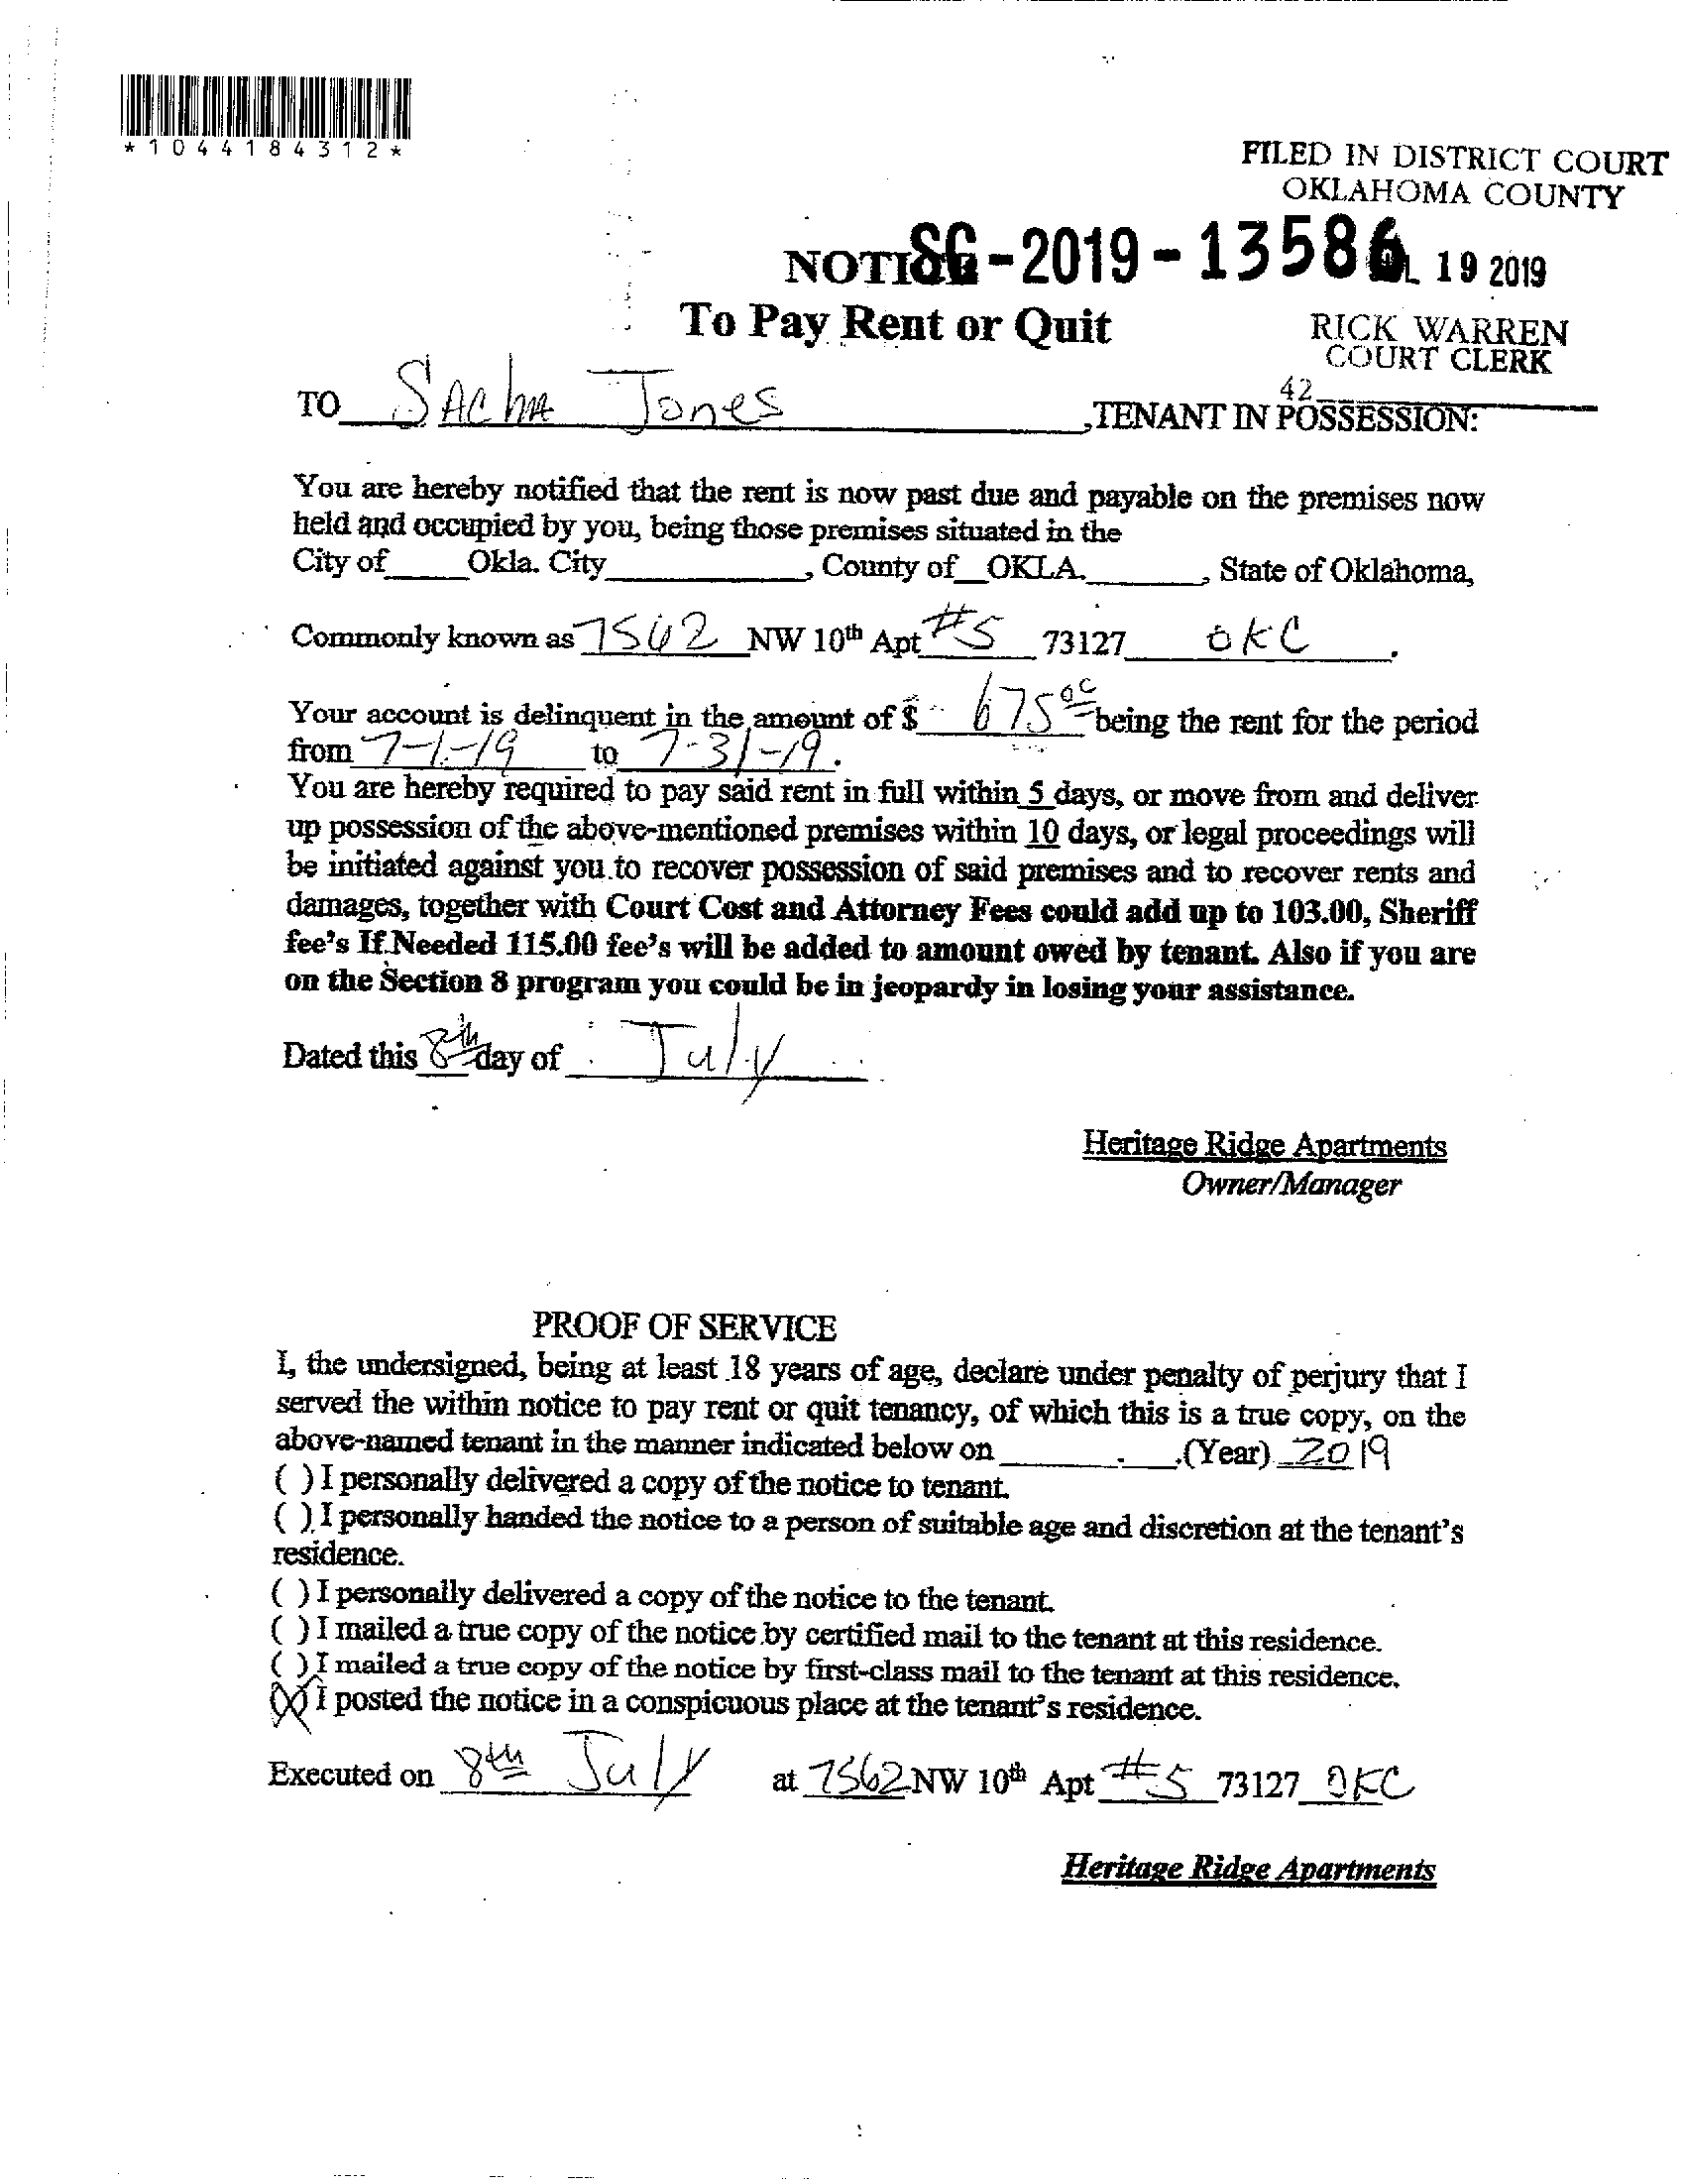 *1044184312*
FILED IN DISTRICT COURT
OKLAHOMA COUNTY
SC-2019-13586
19 2019
To Pay Rent or Quit
RICK WARREN
COURT CLERK
42
TO Sacha Jones, TENANT IN POSSESSION:
You are hereby notified that the rent is now past due and payable on the premises now
held and occupied by you, being those premises situated in the
City of Okla. City, County of OKLA., State of Oklahoma,
Commonly known as 7562 NW 10th Apt #5 73127 OKC.
Your account is delinquent in the amount of $ 675 00 being the rent for the period
from 7-1-19 to 7-31-19.
You are hereby required to pay said rent in full within 5 days, or move from and deliver
up possession of the above-mentioned premises within 10 days, or legal proceedings will
be initiated against you to recover possession of said premises and to recover rents and
damages, together with Court Cost and Attorney Fees could add up to 103.00, Sheriff
fee's If Needed 115.00 fee's will be added to amount owed by tenant. Also if you are
on the Section 8 program you could be in jeopardy in losing your assistance.
Dated this 8th day of July
Heritage Ridge Apartments
Owner/Manager
PROOF OF SERVICE
I, the undersigned, being at least 18 years of age, declare under penalty of perjury that I
served the within notice to pay rent or quit tenancy, of which this is a true copy, on the
above-named tenant in the manner indicated below on ________.___.(Year) 2019
( ) I personally delivered a copy of the notice to tenant.
( ) I personally handed the notice to a person of suitable age and discretion at the tenant's
residence.
( ) I personally delivered a copy of the notice to the tenant.
( ) I mailed a true copy of the notice by certified mail to the tenant at this residence.
( ) I mailed a true copy of the notice by first-class mail to the tenant at this residence.
(X) I posted the notice in a conspicuous place at the tenant's residence.
Executed on 8th July at 7562 NW 10th Apt #5 73127 OKC
Heritage Ridge Apartments